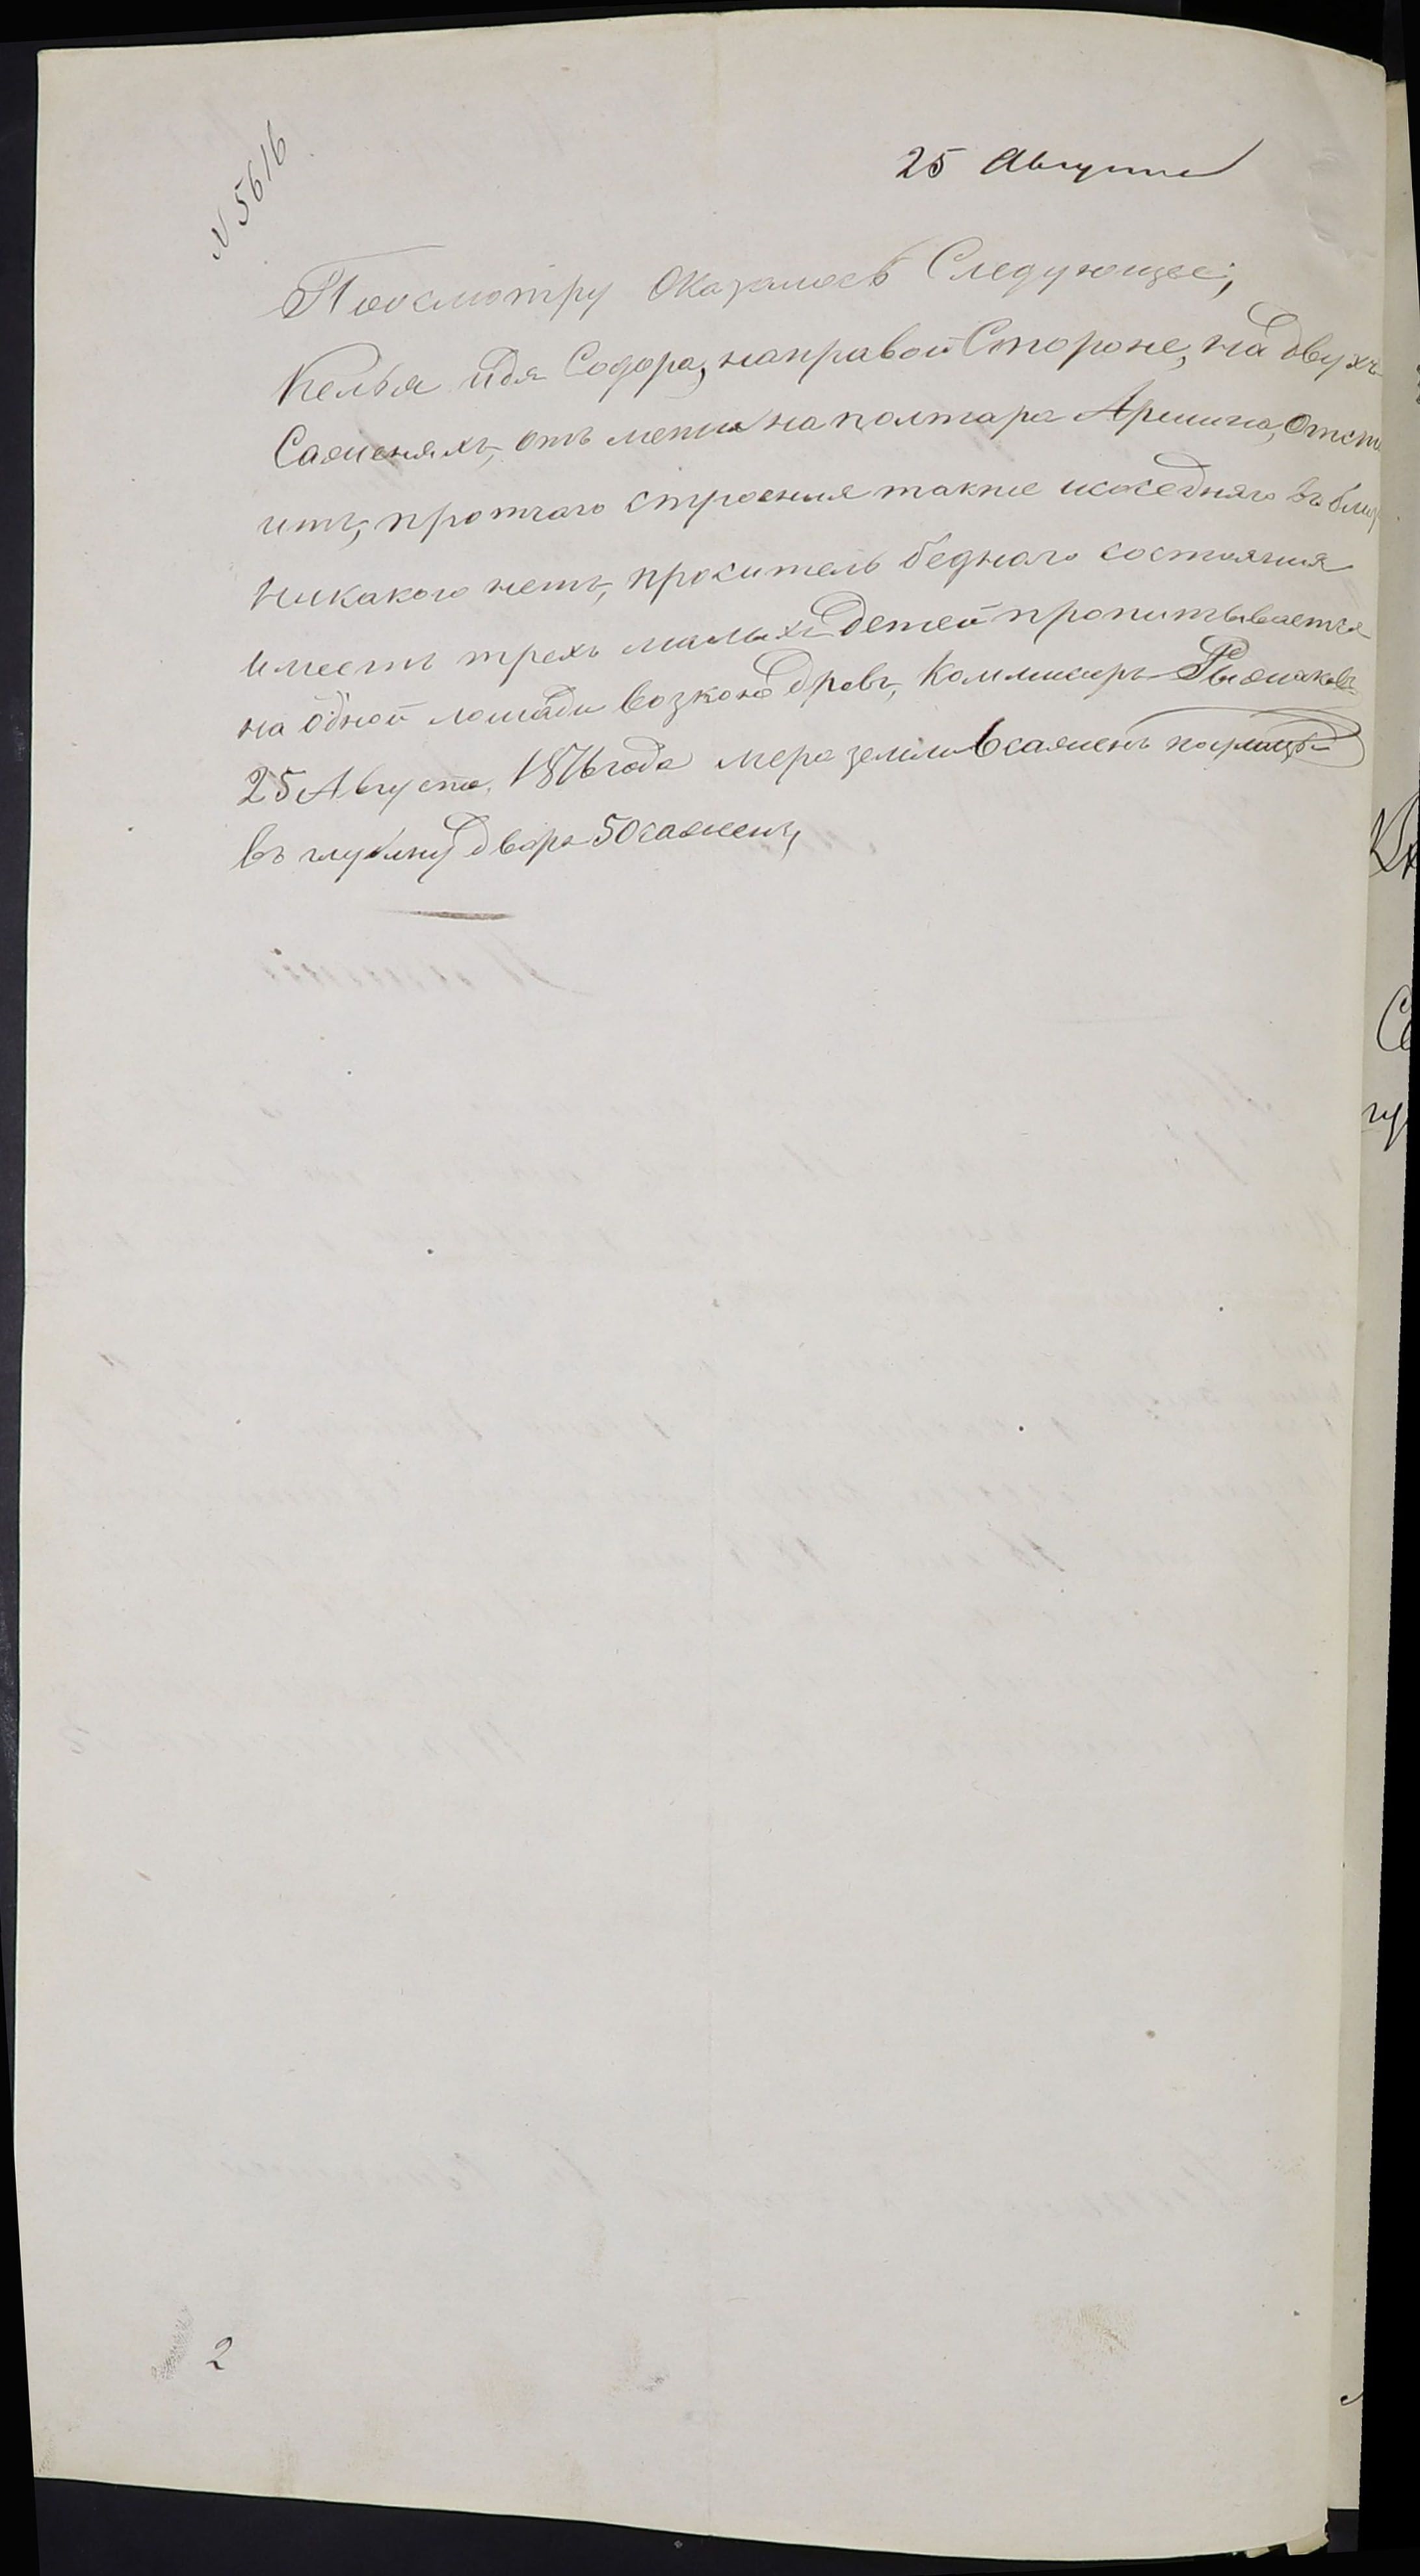 N 5616
25 Августа
Поосмотру Оказалось Следующее;
Келья идя Содора, направой Стороне, на двухъ
Саженяхъ, отъ межи наполтара Аршина, Отсто
итъ, протчаго строения также исоседняго въ близ
Никакого нетъ, проситель бедного состояния
имеетъ трехъ малыхъ Детей пропитывается
на одной лошади возкою дровъ, Коммисаръ Рыжаковъ
25 Августа 1876 года мера земли 6 саженъ поулицы
въ глубину двора 50 саженъ,
2